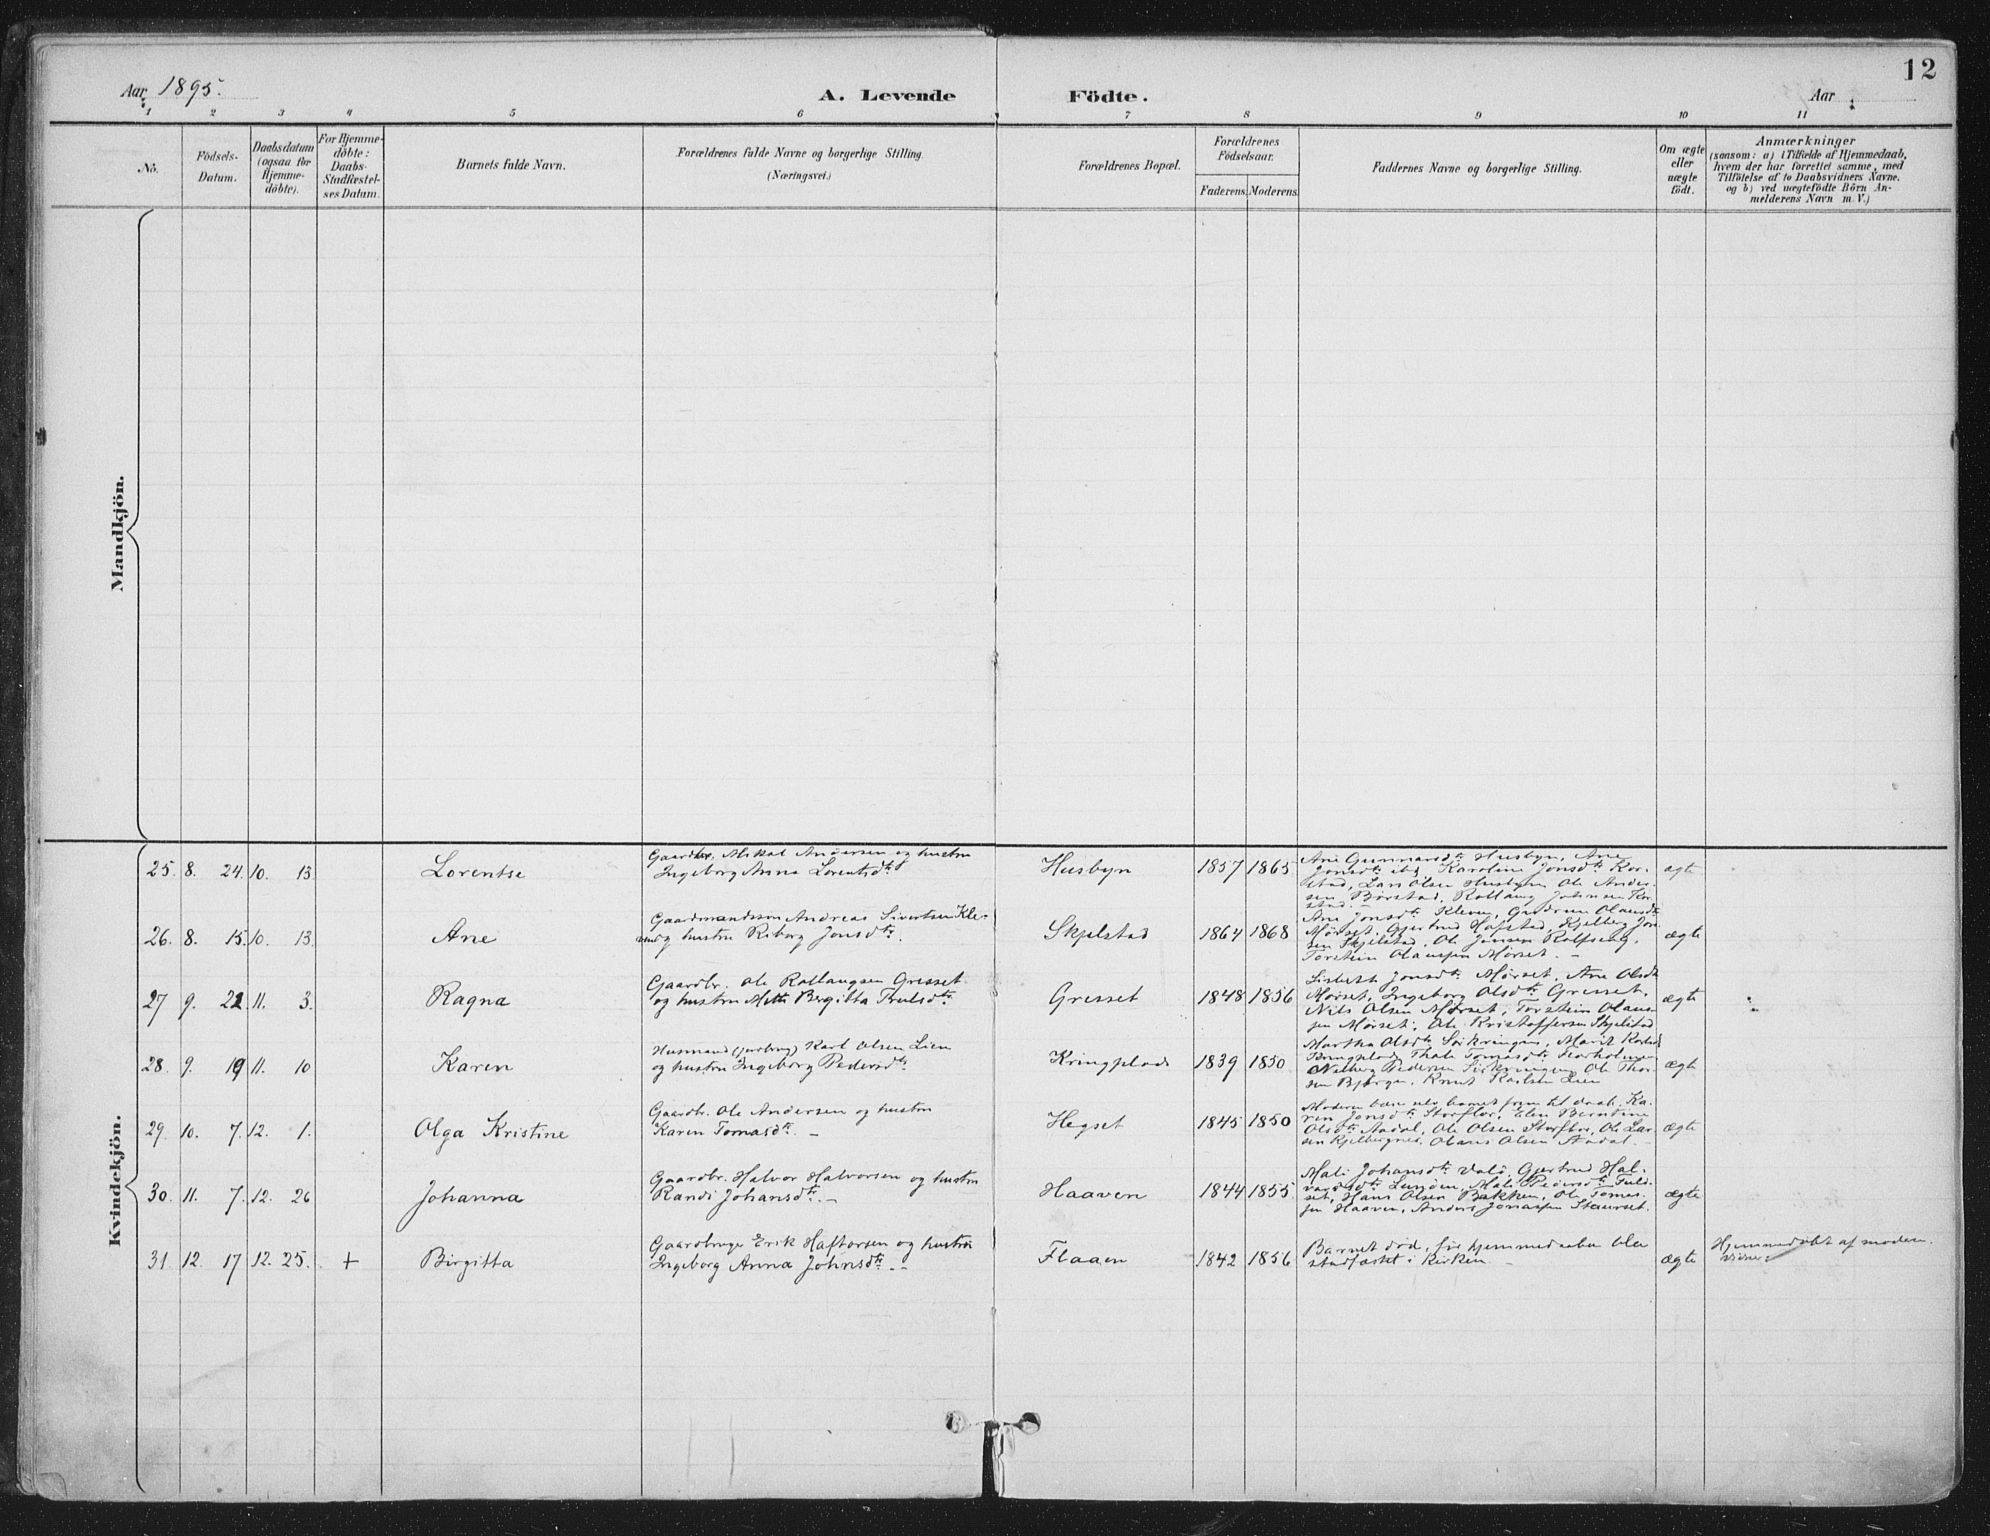 12
Aar 1895.
A. Levende Födte.
Aar
1 2 3 4 5 6 7 8 9 10 11
No.
Födsels-
Datum.
Daabsdatum
(ogsaa for
Hjemme-
döbte).
For Hjemme-
döbte:
Daabs-
Stadfæstel-
ses Datum.
Barnets fulde Navn.
Forældrenes fulde Navne og borgerlige Stilling.
(Næringsvei.)
Forældrenes Bopæl.
Forældrenes
Födselsaar.
Faderens. Moderens.
Faddernes Navne og borgerlige Stilling.
Om ægte
eller
uægte
födt.
Anmærkninger
(saasom: a) i Tilfælde af Hjemmedaab,
hvem der har forrettet samme, med
Tilföielse af to Daabsvidners Navne,
og b) ved uægtefödte Börn An-
melderens Navn m. V.)
Mandkjön.
Kvindekjön.
25. 8. 24. 10. 13.
Lorentse
Gaardbr. Mikal Andersen og hustru
Ingeborg Anna Lorentsdtr
Husbyn
1857 1865
Ane Gunnarsdtr Husbyn, Ane
Jonsdtr ibd, Karoline Jonsdtr Kor-
stad, Lars Olsen Husbyn, Ole Ander-
sen Børstad, Rollaug Johnsen Kor-
stad. —
ægte
26. 8. 15. 10. 13.
Ane
Gaardmandssøn Andreas Sivertsen Kle-
og hustru Riborg Jonsdtr.
Skjelstad
1864 1868
Ane Jonsdtr Kleven, Gudrun Olausdtr
Mørset, Gjertrud Hofstad, Kjelberg Jon-
sen Skjelstad, Ole Jensen Rolfseng,
Torstein Olaussen Mørset. —
ægte
27 9. 22. 11. 3.
Ragna
Gaardbr. Ole Rollaugsen Gresset
og hustru Mette Birgitta Trulsdtr.
Gresset
1848 1856
Lisbeth Jonsdtr Mørset, Ane Olsdtr
Mørset, Ingeborg Olsdtr Gresset,
Nils Olsen Mørset, Torstein Olaus-
sen Mørset, Ole Kristoffersen Skjelstad
ægte
28. 9. 19 11. 10
Karen
Husmand (jordbrug) Karl Olsen Lien
og hustru Ingeborg Pedersdtr
Kringplads
1839 1850
Martha Olsdtr Sirkringen, Marit
Kringplads, Thale Tomasdtr
Pedersen Sirkringen, Ole Thor-
sen Bjørgen, Knut Karlsen Lien
ægte
29. 10. 7. 12. 1.
Olga Kristine
Gaardbr. Ole Andersen og hustru
Karen Tomasdtr. —
Hegset
1845 1850
Moderen bære selv barnet frem til daab. Ka-
ren Jonsdtr Storflor, Elen Berntine
Olsdtr Aadal, Ole Olsen Storflor, Ole Lar-
sen Kjelbergnes, Olaus Olsen Aadal. —
ægte
30. 11. 7. 12. 26
Johanna
Gaardbr. Halvor Halvorsen og hustru
Randi Johansdtr. —
Haaven
1844 1855
Mali Johansdtr Vold, Gjertrud Hal-
vorsdtr Lunden, Mali Pedersdtr Fuld-
set, Hans Olsen Bakken, Ole Tomas-
sen Haaven, Anders Jonassen Staurset.
ægte
31. 12. 17 12. 25. +
Birgitta
Gaardbruge Erik Haftorsen og hustru
Ingeborg Anna Johnsdtr. —
Flaaen
1842 1856
Barnet død, før hjemmedaaben blev
stadfæstet i Kirken —
ægte
Hjemmedøbt af moderen.